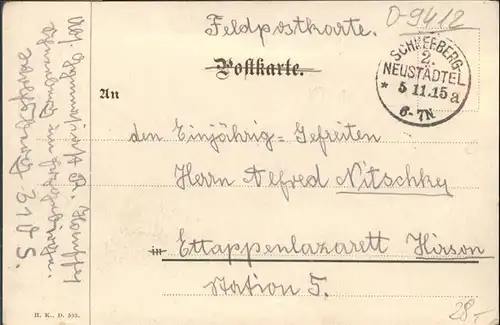 Feldpostkarte.
D-9412
Postkarte.
SCHNEEBERG-
2.
NEUSTÄDTEL
* 5 11.15 a
6-7N
An
den Einjährig-Gefreiten
Herrn Alfred Nitschky
in Ettappenlazarett Hirson
Station 5.
Abs. Gymnasiast R.
Schneeberg im Erzgebirge.
H. K., D. 535.
28.-